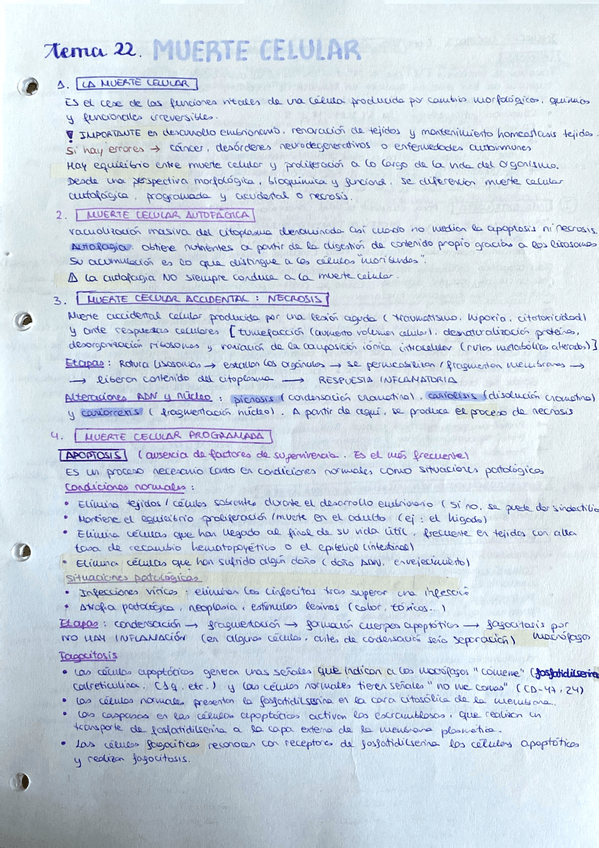 Tema 22. MUERTE CELULAR
1. LA MUERTE CELULAR
Es el cese de las funciones vitales de una célula producida por cambios morfológicos, químicos
y funcionales irreversibles.
! IMPORTANTE en desarrollo embrionario, renovación de tejidos y mantenimiento homeostasis tejidos.
Si hay errores → cáncer, desórdenes neurodegenerativos o enfermedades autoinmunes
Hay equilibrio entre muerte celular y proliferación a lo largo de la vida del organismo.
Desde una perspectiva morfológica, bioquímica y funcional, se diferencian muerte celular
autofágica, programada y accidental o necrosis.
2. MUERTE CELULAR AUTOFÁGICA
Vacuolización masiva del citoplasma denominada así cuando no median la apoptosis ni necrosis.
Autofagia: obtiene nutrientes a partir de la digestión de contenido propio gracias a los lisosomas
Su acumulación es lo que distingue a las células "moribundas".
⚠ La autofagia NO siempre conduce a la muerte celular.
3. MUERTE CELULAR ACCIDENTAL: NECROSIS
Muerte accidental celular producida por una lesión aguda (traumatismo, hipoxia, citotoxicidad)
y ante respuestas celulares [tumefacción (aumento volumen celular), desnaturalización proteínas,
desorganización ribosomas y variación de la composición iónica intracelular (rutas metabólicas alteradas)]
Etapas: Rotura lisosomas → estallan los orgánulos → se permeabilizan/fragmentan membranas →
→ liberan contenido del citoplasma → RESPUESTA INFLAMATORIA
Alteraciones ADN y núcleo: picnosis (condensación cromatina), cariolisis (disolución cromatina)
y cariorrexis (fragmentación núcleo). A partir de aquí, se produce el proceso de necrosis
4. MUERTE CELULAR PROGRAMADA
APOPTOSIS (ausencia de factores de supervivencia. Es el más frecuente)
Es un proceso necesario tanto en condiciones normales como situaciones patológicas
Condiciones normales:
• Elimina tejidos/células sobrantes durante el desarrollo embrionario (si no, se puede dar sindactilia
• Mantiene el equilibrio proliferación/muerte en el adulto (ej: el hígado)
• Elimina células que han llegado al final de su vida útil, frecuente en tejidos con alta
tasa de recambio hematopoyético o el epitelial (intestinal)
• Elimina células que han sufrido algún daño (daño ADN, envejecimiento)
Situaciones patológicas
• Infecciones víricas: eliminan los linfocitos tras superar una infección
• Atrofia patológica, neoplasia, estímulos lesivos (calor, tóxicos..)
Etapas: condensación → fragmentación → formación cuerpos apoptóticos → fagocitosis por
NO HAY INFLAMACIÓN (en algunas células, antes de condensación sería separación) macrófagos
Fagocitosis
• Las células apoptóticas generan unas señales que indican a los macrófagos "cómeme" (fosfatidilserina
calreticulina, C1q, etc.) y las células normales tienen señales "no me comas" (CD-47, 24)
• Las células normales presentan la fosfatidilserina en la cara citosólica de la membrana.
• Las caspasas en las células apoptóticas activan las escramblasas, que realizan un
transporte de fosfatidilserina a la capa externa de la membrana plasmática.
• Las células fagocíticas reconocen con receptores de fosfatidilserina las células apoptóticas
y realizan fagocitosis.